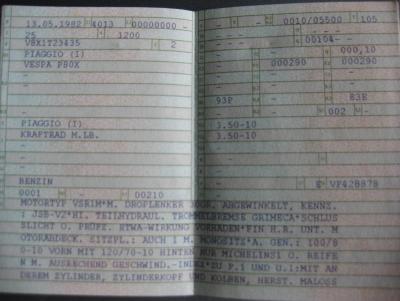 13.05.1982 4013 00000000 -
25 1200
V8X1T23435 2
PIAGGIO (I)
VESPA P80X
-
-
PIAGGIO (I)
KRAFTRAD M.LB.
-
-
BENZIN
0001 - 00210
- 0010/05500 105
- -
00104-
- 000,10
000290 000290
- -
93P 83E
- 002 -
3.50-10
3.50-10
-
-
- E VF428878
MOTORTYP VSRIM*M. ABGEWINKELT, KENNZ.
TEILHYDRAUL. TROMMELBREMSE GRIMECA*SCHLUS
SLICHT O. PRÜFZ. RTWA-WIRKUNG H.R. UNT. M
OTORABDECK. SITZPL.: AUCH 1 M. MONOSITZ*A. GEN.: 100/8
0-10 VORN MIT 120/70-10 HINTEN NUR MICHELIN O. REIFE
N M. AUSREICHEND GESCHWIND.-INDEX*ZU P.1 U.1:MIT AN
DEREM ZYLINDER, ZYLINDERKOPF UND KOLBEN, HERST. MALOSS